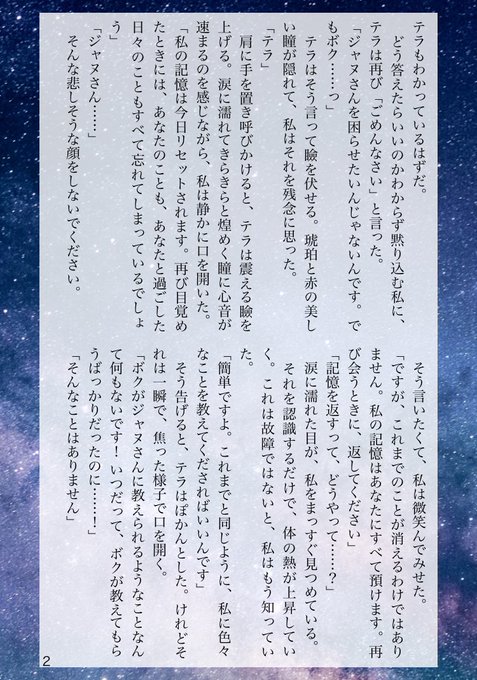 テラもわかっているはずだ。
　どう答えたらいいのかわからず黙り込む私に、
テラは再び「ごめんなさい」と言った。
「ジャヌさんを困らせたいんじゃないんです。で
もボク……っ」
　テラはそう言って瞼を伏せる。琥珀と赤の美し
い瞳が隠れて、私はそれを残念に思った。
「テラ」
　肩に手を置き呼びかけると、テラは震える瞼を
上げる。涙に濡れてきらきらと煌めく瞳に心音が
速まるのを感じながら、私は静かに口を開いた。
「私の記憶は今日リセットされます。再び目覚め
たときには、あなたのことも、あなたと過ごした
日々のこともすべて忘れてしまっているでしょ
う」
「ジャヌさん……」
　そんな悲しそうな顔をしないでください。
　そう言いたくて、私は微笑んでみせた。
「ですが、これまでのことが消えるわけではあり
ません。私の記憶はあなたにすべて預けます。再
び会うときに、返してください」
「記憶を返すって、どうやって……？」
　涙に濡れた目が、私をまっすぐ見つめている。
　それを認識するだけで、体の熱が上昇してい
く。これは故障ではないと、私はもう知ってい
た。
「簡単ですよ。これまでと同じように、私に色々
なことを教えてくださればいいんです」
　そう告げると、テラはぽかんとした。けれどそ
れは一瞬で、焦った様子で口を開く。
「ボクがジャヌさんに教えられるようなことなん
て何もないです！いつだって、ボクが教えてもら
うばっかりだったのに……！」
「そんなことはありません」
2